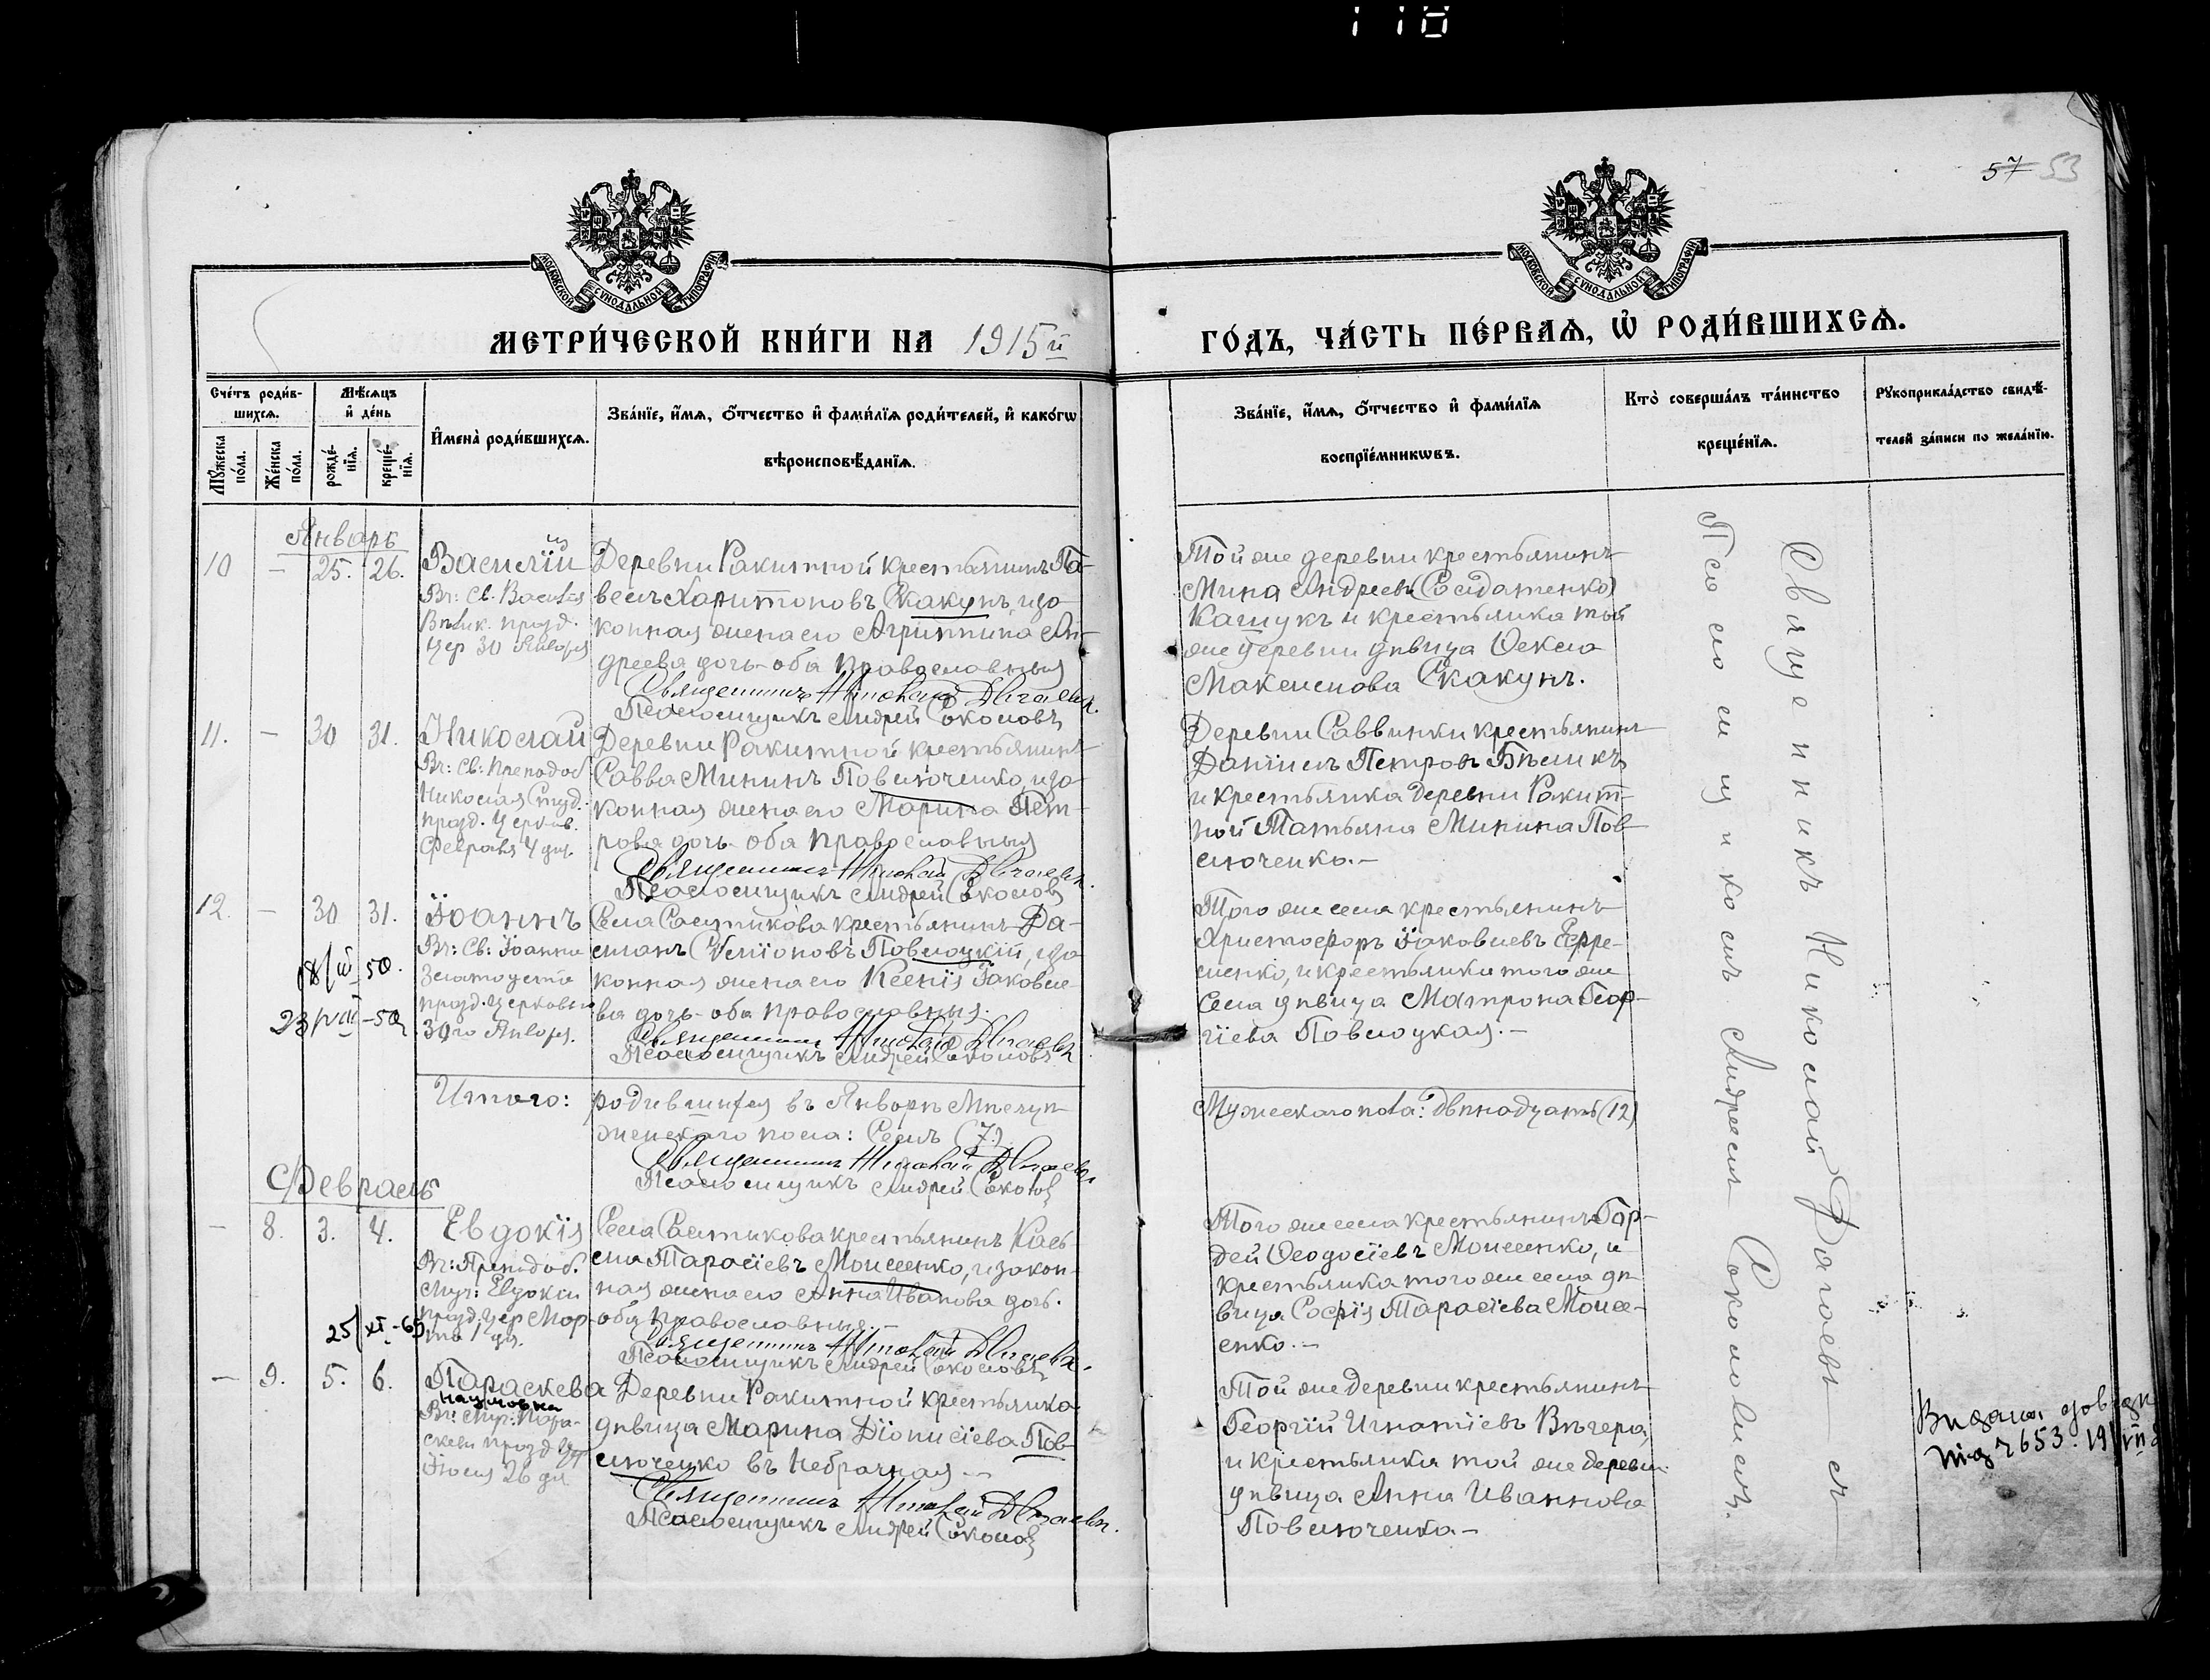 118
57 53
МОСКОВСКОЙ СѴНОДАЛЬНОЙ ТИПОГРАФІИ
МОСКОВСКОЙ СѴНОДАЛЬНОЙ ТИПОГРАФІИ
МЕТРИ́ЧЕСКОЙ КНИ́ГИ НА 1915й
ГО́ДЪ, ЧА́СТЬ ПЕ́РВАѦ, Ѽ РОДИ́ВШИХСѦ.
Сче́тъ роди́в-
шихсѧ.
Мѣ́сѧцъ
и҆ де́нь
Мꙋ́жеска
по́ла.
Же́нска
по́ла.
рожде́-
нїѧ.
креще́-
нїѧ.
И҆мена̀ роди́вшихсѧ.
Зва́нїе, и҆́мѧ, ѻ҆́тчество и҆ фами́лїѧ роди́телей, и҆ како́гѡ
вѣроисповѣ́данїѧ.
Зва́нїе, и҆́мѧ, ѻ҆́тчество и҆ фами́лїѧ
воспрїе́мникѡвъ.
Кто̀ соверша́лъ та́инство
креще́нїѧ.
Рꙋкоприкла́дство свидѣ́-
телей за́писи по жела́нїю.
Январь
10 — 25. 26.
Василій
Вч: Св. Василія
Велик. празд.
Цер 30 Января
Деревни Ракитной крестьянинъ Па-
велъ Харитоновъ Скакунъ, и за-
конная жена его Агриппина Ан-
дреева дочь оба православныя
Священникъ Николай Дагаевъ
Псаломщикъ Андрей Соколовъ
Той же деревни крестьянинъ
Мина Андреевъ
Кашукъ и крестьянка той
же деревни дѣвица Ѳекла
Максимова Скакунъ.
11. — 30 31.
Николай
Вч: Св: Преподоб
Николая Студ.
празд. Церков.
Февраля 4 дня.
Деревни Ракитной крестьянинъ
Савва Мининъ Павлюченко, и за-
конная жена его Марина Пет-
рова дочь оба православныя
Священникъ Николай Дагаевъ
Псаломщикъ Андрей Соколовъ
Деревни Саввинки крестьянинъ
Даніилъ Петровъ Бѣликъ
и крестьянка деревни Ракит-
ной Татьяна Минина Пав-
люченко.—
12. — 30 31.
Іоаннъ
Вч: Св: Іоанна
Златоуста
празд. Церковью
30го Января.
18/III 50.
23/VIII-50
Села Сальникова крестьянинъ Да-
міанъ Симіоновъ Павлоцкій, и за-
конная жена его Ксенія Іаковле-
ва дочь оба православныя.
Священникъ Николай Дагаевъ
Псаломщикъ Андрей Соколовъ
Того же села крестьянинъ
Христофоръ Іаковлевъ
и крестьянка того же
села дѣвица Матрона Геор-
гіева Павлоцкая.—
Итого: родившихся въ Январѣ Мѣсяцѣ
женскаго пола: Семь (7.)
Священникъ Николай Дагаевъ
Псаломщикъ Андрей Соколовъ
Мужескаго пола: двѣнадцать (12)
Февраль
— 8. 3. 4.
Евдокія
Вч: Преподоб.
Муч: Евдокіи
празд. Цер Мар-
та 1 дня.
25/XI-65
Села Сальникова крестьянинъ
Тарасіевъ Моисеенко, и закон-
ная жена его Анна Иванова дочь.
оба православныя.—
Священникъ Николай Дагаевъ
Псаломщикъ Андрей Соколовъ
Того же села крестьянинъ Гор-
дей Ѳеодосіевъ Моисеенко, и
крестьянка того же села дѣ-
вица Софія Тарасіева Моисе-
енко.—
— 9. 5. 6.
Параскева
Наумовна
Вч: Муч: Пара-
скевы празд
Іюля 26 дня
Деревни Ракитной крестьянка
дѣвица Марина Діонисіева Пав-
люченко въ Небрачная —
Священникъ Николай Дагаевъ
Псаломщикъ Андрей Соколовъ
Той же деревни крестьянинъ
Георгій Игнатіевъ Вечера,
и крестьянка той же деревни
дѣвица Анна Иваннова
Павлюченко.—
Священникъ Николай Дагаевъ
Псаломщикомъ Андреемъ Соколовымъ.
Видана довідк
під 2653.